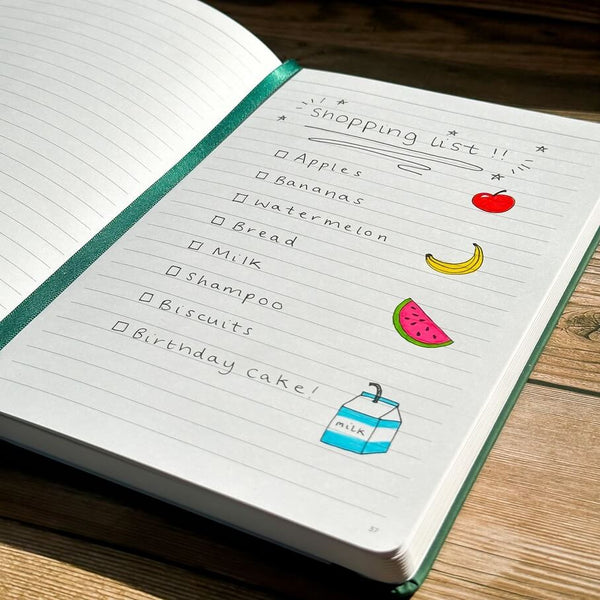 Shopping list !!
Apples
Bananas
Watermelon
Bread
Milk
Shampoo
Biscuits
Birthday cake!
milk
57